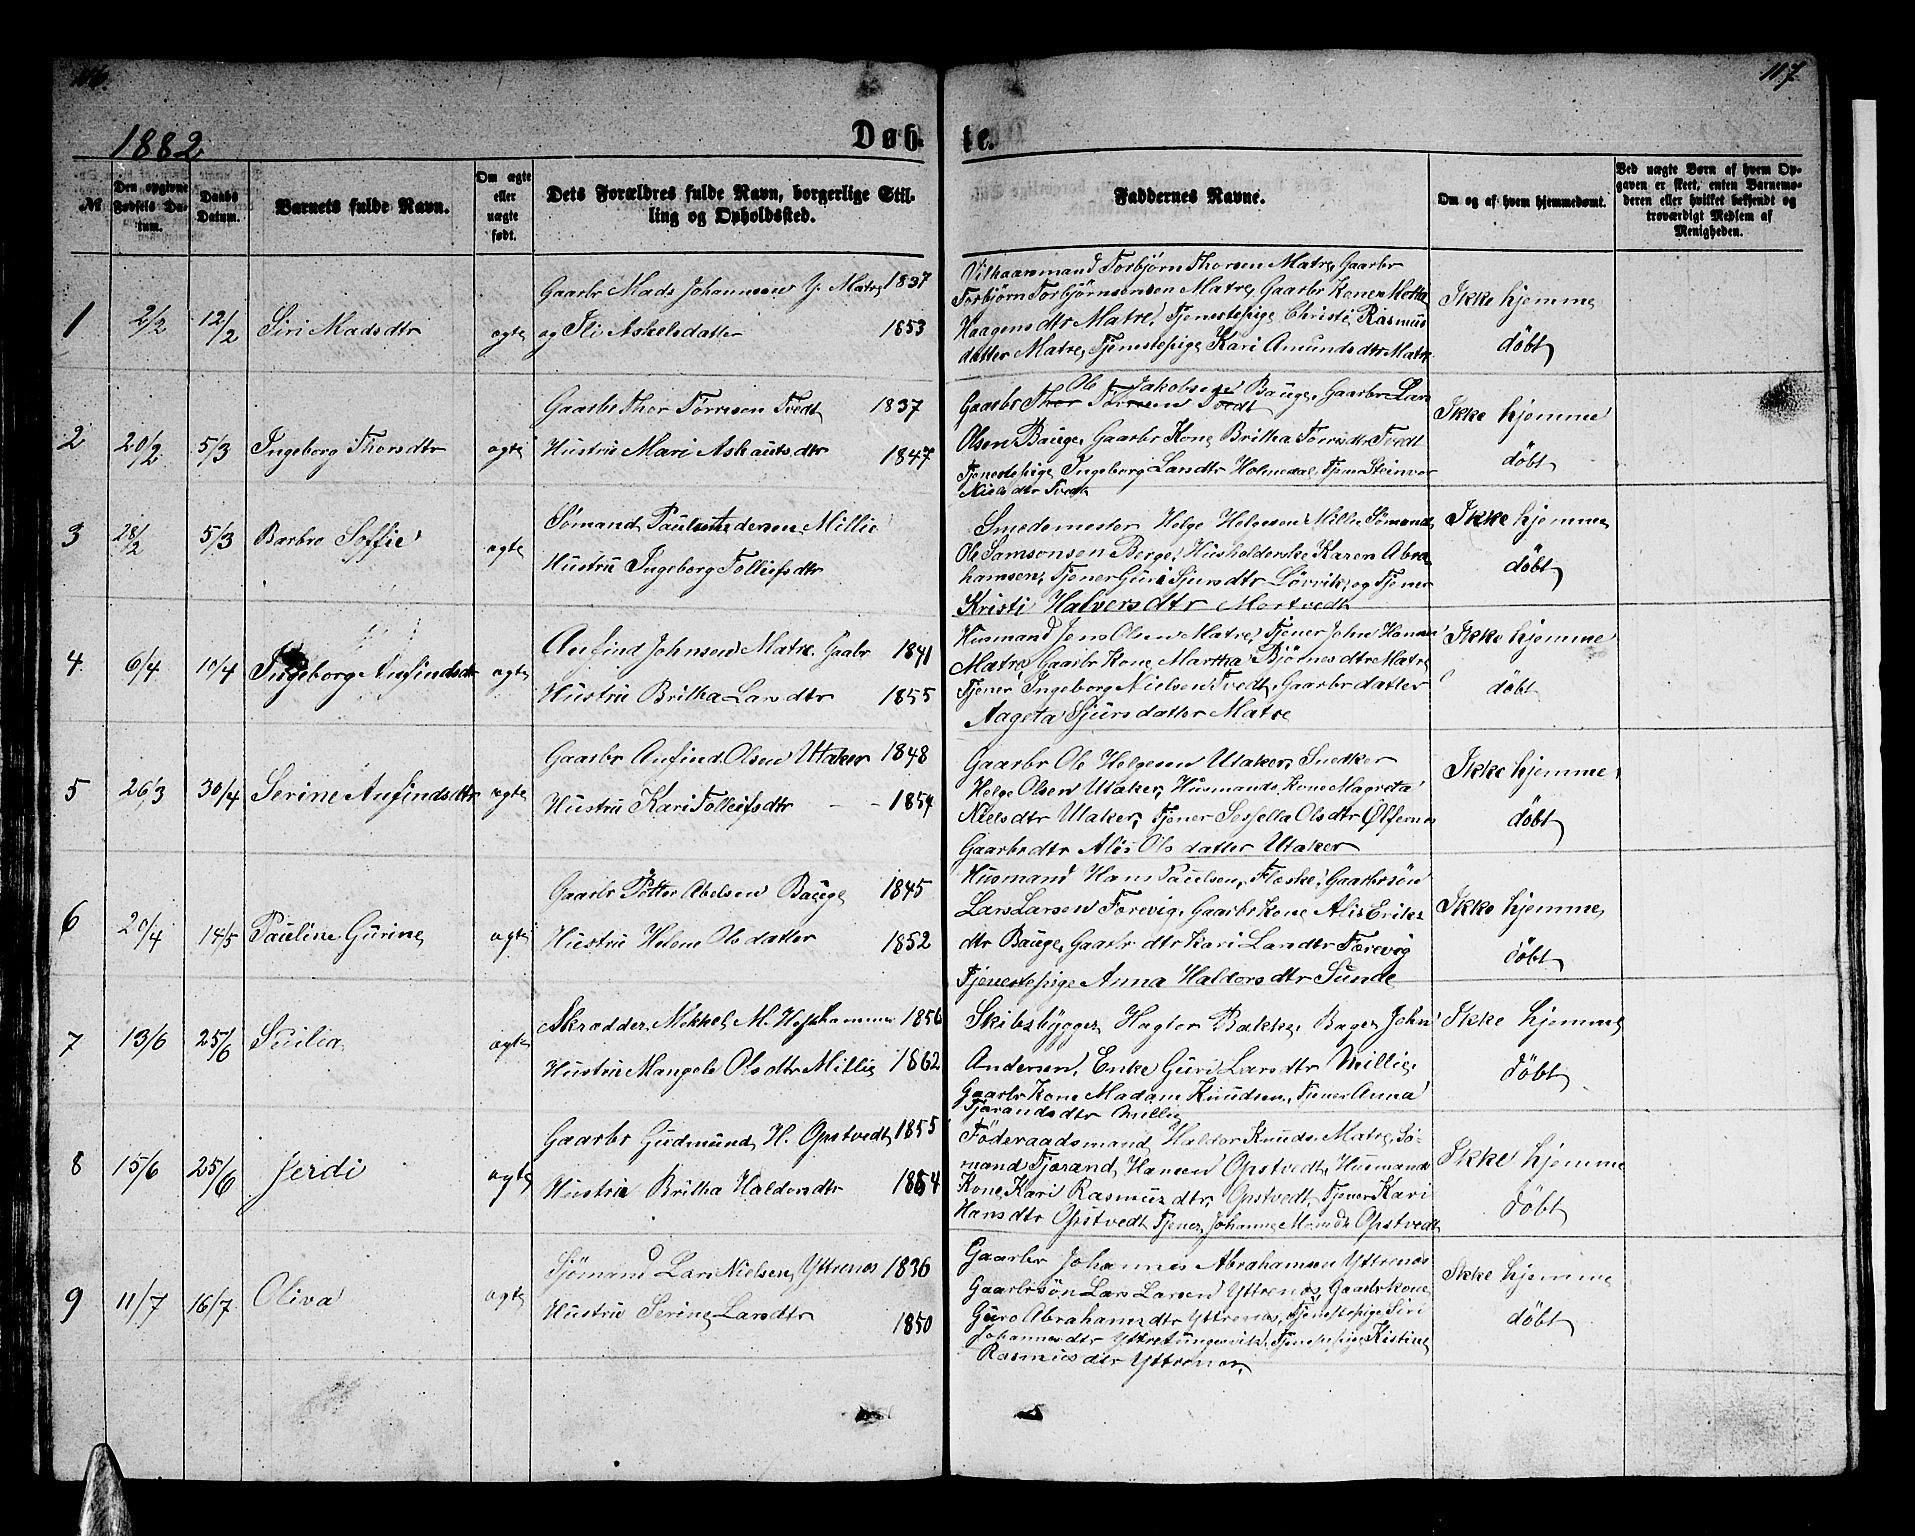 116.
117.
1882
Døb-
te.
№
Den opgivne Fødsels Datum.
Daabs Datum.
Barnets fulde Navn.
Om ægte eller uægte født.
Dets Forældres fulde Navn, borgerlige Stilling og Opholdssted.
Faddernes Navne.
Om og af hvem hjemmedøbt.
Ved uægte Børn af hvem Opgaven er skeet, enten Barnemoderen eller hvilket bekjendt og troværdigt Medlem af Menigheden.
1 2/2 12/2 Siri Madsdtr ægte
Gaarbr Mads Johannesen Y. Matre 1837
og Eli Askelsdatter 1853
Vilkaarsmand Torbjørn Thorsen Matre, Gaarbr
Torbjørn Torbjørnsensen Matre, Gaarbr Kone Metta
Haagensdtr Matre, Tjenestepige Christi Rasmus
datter Matre, Tjenestepige Kari Amundsdtr Matre
Ikke hjemme
døbt
2 20/2 5/3 Ingeborg Thorsdtr ægte
Gaarbr Thor Tørresen Tvedt 1837
Hustru Mari Askautsdtr 1847
Ole Jakobsen Bauge, Gaarbr Lars
Gaarbr Thor Tørresen Tvedt
Olsen Bauge, Gaarbr Kone Britha Torrisdtr Tvedt
Tjenestepige Ingeborg Larsdtr Holmedal, Tjener Steinvor
Nielsdtr Tvedt
Ikke hjemme
døbt
3 28/2 5/3 Barbro Soffie ægte
Sømand Paul Pedersen Millie
Hustru Ingeborg Tolleifsdtr
Smedemester Helge Helgesen Millie Sømand
Ole Samsonsen Berge, Husholderske Karen Abra
hamsen, Tjener Guri Sjursdtr Løvvik, og Tjener
Kristi Halversdtr Mortvedt
Ikke hjemme
døbt
4 6/4 10/4 Ingeborg Anfindsdtr ægte
Anfind Johnsen Matre Gaabr 1841
Hustru Britha Larsdtr 1855
Husmand Jens Olsen Matre, Tjener John Hansen
Matre, Gaarbr Kone Martha Bjørnesdtr Matre
Tjener Ingeborg Nielsen Tvedt, Gaarbr datter
Aageta Sjursdatter Matre
Ikke hjemme
døbt
5 26/3 30/4 Serine Anfindsdtr ægte
Gaarbr Anfind Olsen Utaker 1848
Hustru Kari Tolleifsdtr - - 1854
Gaarbr Ole Helgesen Utaker, Snedker
Helge Olsen Utaker, Husmands Kone Magreta
Nielsdtr Utaker, Tjener Sessella Olsdtr Ølfernes
Gaarbrdtr Alis Olsdatter Utaker
Ikke hjemme
døbt
6 20/4 14/5 Pauline Gurine ægte
Gaarbr Petter Abelsen Bauge 1845
Hustru Helene Olsdatter 1852
Husmand Hans Paulsen, Floske, Gaarbrsøn
Lars Larsen Færevig, Gaarbr Kone Alis Eriks
dtr Bauge, Gaarbr dtr Kari Larsdtr Færevig
Tjenestepige Anna Haldorsdtr Sunde
Ikke hjemme
døbt
7 13/6 25/6 Secilia ægte
Skrædder Mikkel M. Hofshammer 1856
Hustru Mangele Olsdtr Millie 1862
Skibsbygger Hagtor Bakke, Bager John
Andersen, Enke Guri Larsdtr Millie,
Gaarbr Kone Madam Knudsen, Tjener Anna
Tjærandsdtr Millie
Ikke hjemme
døbt
8 15/6 25/6 Jerdi ægte
Gaarbr Gudmund H. Opstvedt 1855
Hustru Britha Haldorsdtr 1854
Føderaadsmand Haldor Knuds. Matre, Sø-
mand Tjærand Hansen Opstvedt, Husmands
Kone Kari Rasmusdtr, Opstvedt, Tjener Kari
Hansdtr Opstvedt Tjener Johanne Monsdtr Opstvedt
Ikke hjemme
døbt
9 11/7 16/7 Oliva ægte
Sjømand Lars Nielsen, Yttrenes 1836
Hustru Serine Larsdtr 1850
Gaarbr Johannes Abrahamsen Yttrenes
Gaarbrsøn Lars Larsen Yttrenes, Gaarbr kone
Guro Abrahamsdtr Yttrenes, Tjenestepige Siri
Johannesdtr Yttretungesvik, Tjenestepige Kistine
Rasmusdtr Yttrenes,
Ikke hjemme
døbt